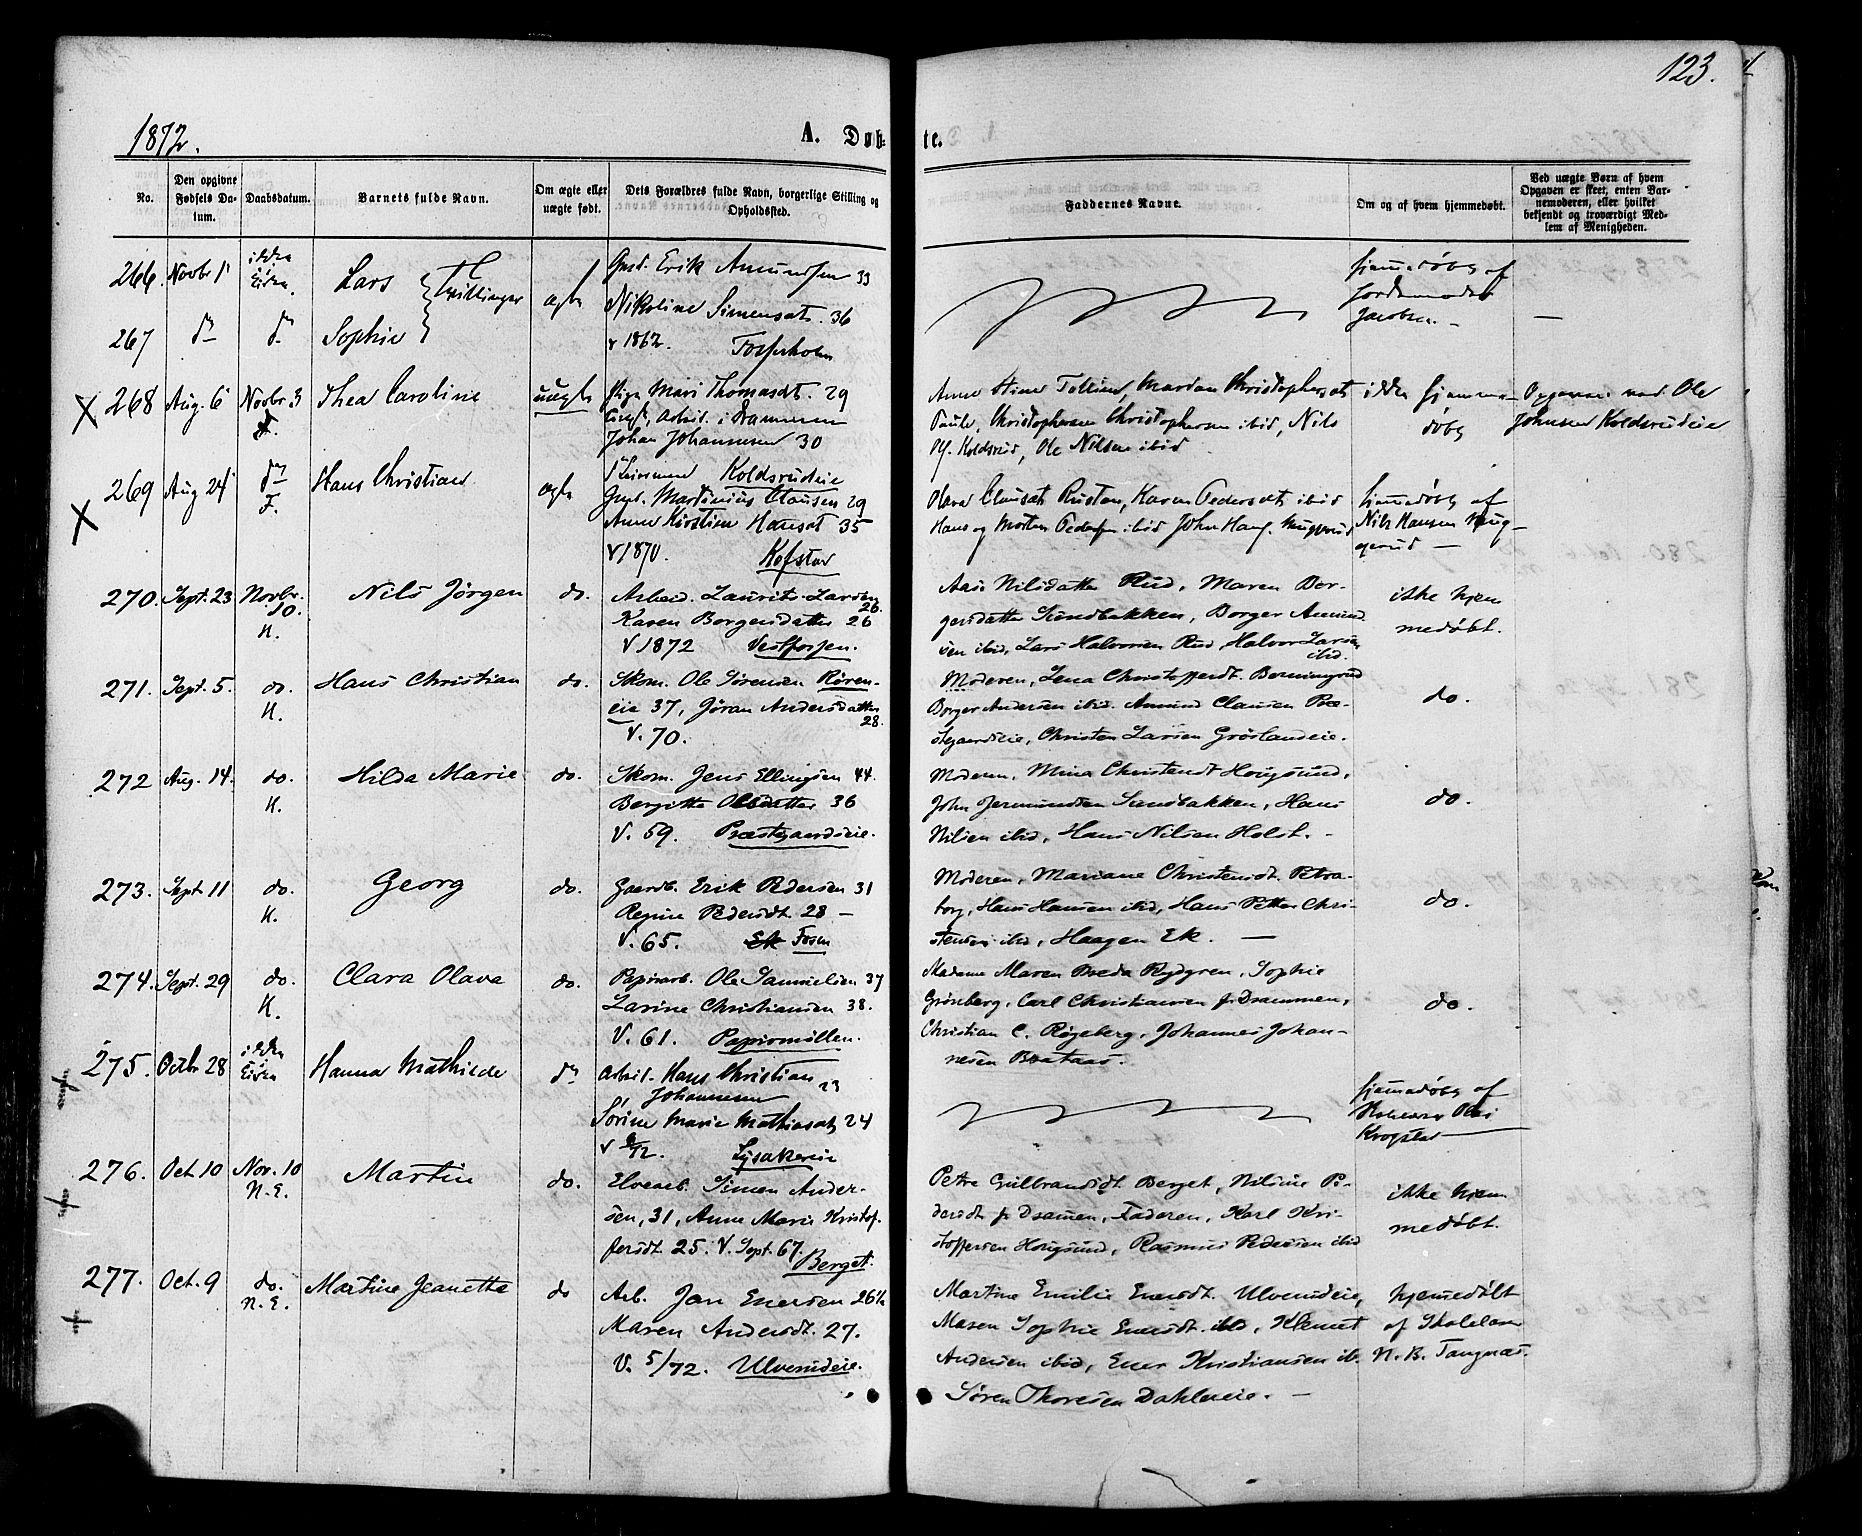 123.
1872.
A. Døb-
te.
No.
Den opgivne Fødsels Da-tum.
Daabsdatum.
Barnets fulde Navn.
Om ægte eller uægte født.
Dets Forældres fulde Navn, borgerlige Stilling og Opholdssted.
Faddernes Navne.
Om og af hvem hjemmedøbt.
Ved uægte Børn af hvem Opgaven er skeet, enten Bar-nemoderen, eller hvilket bekjendt og troværdigt Med-lem af Menigheden.
266. Novbr 1 Lars Tvillinger Erik Amundsen 33 hjemmedøbt af
ægte Nikoline Simensdt. 36 Jordemoder
267 do do Sophie v 1862. Jacobsen. —
268 Aug. 6 Novbr 3 Thea Caroline uægte Pige Mari Thomasdt. 29
F. Arbeid. i Drammen
Johan Johannesen 30
Christophersen ibid, Nils
Koldsrud, Ole Nilsen ibid
ikke hjemme-
døbt
Ole
Johnsen Koldsrudeie
Koldsrudeie
269 Aug 24 do Hans Christian ægte Martinius Clausen 29
F. Anne Kirstine Hansdt 35
v 1870. Kofstad
Karen Pedersdt ibid
Hans og Morten Pedersen ibid
hjemmedøbt af
Nils Hansen Mug-
gerud —
270. Sept. 23 Novbr. 10. Nils Jørgen do. Arbeid. Laurits Larsen 26.
H. Karen Borgersdatter 26
V 1872 Vestfossen.
Aase Nilsdatter Rud, Maren Bor-
gersdatter Sandbakken, Borger Amund
sen ibid, Lars Halvorsen Rud, Halvor Larsen
ibid.
ikke hjem
medøbt.
271. Sept. 5. do. Hans Christian do. Skom. Ole Sørensen Røren-
H. eie 37, Jøran Andersdatter 28.
V. 70.
Moderen, Lena Christoffersdt.
Borger Andersen ibid. Amund Clausen Præ-
stegaardseie, Christen Larsen Grøslandeie.
do.
272 Aug. 14. do. Hilda Marie do. Skom. Jens Ellingsen 44.
H. Bergitte Olsdatter 36
V. 59. Præstegaardseie.
Moderen, Mina Christensdt Hougsund,
John Jermundsen Sandbakken, Hans
Nilsen ibid, Hans Nilsen Holst. -
do.
273. Sept 11 do. Georg do. Gaardb. Erik Pedersen 31
K. Regine Pedersdt. 28 —
V. 65. Ek Fosen
Moderen, Mariane Christensdt. Petra-
borg, Hans Hansen ibid, Hans Petter Chri-
stensen ibid, Haagen Ek. —
do.
274. Sept. 29 do. Clara Olava do. Papirarb. Ole Samuelsen 37
K. Larine Christiansen 38.
V. 61. Papirmøllen.
Madame Maren Breda Rydgren, Sophie
Grønberg, Carl Christiansen fr Drammen,
Christian C. Røgeberg, Johannes Johan-
nesen Braataas.
do.
275. Octbr 28 Hanna Mathilde do Arbeid. Hans Christian
Johannesen 23
Sørine Marie Mathiasdt 24
v /72. Lysakereie
hjemmedøbt af
Krogstad
276. Oct. 10 Nov. 10 Martin do. Elvearb. Simen Ander-
N.E. sen, 31, Anne Marie Kristof-
fersdt. 25. V. Sept. 67. Berget.
Petre Gulbrandsdt. Berget, Nilsine Pe-
dersdt. fr Dramen, Faderen, Karl Kri-
stoffersen Hougsund, Rasmus Pedersen ibid
ikke hjem
medøbt.
277. Oct. 9 do. Martine Jeanette do Arb. Jan Enersen 26½
N.E. Maren Andersdt. 27.
V. 5/72. Ulverudeie.
Martine Emilie Enersdt. Ulverudeie,
Maren Sophie Enersdt. ibid, Klemet
Andersen ibid, Ener Kristiansen ib.
Søren Thoresen Dahleneie. —
hjemmedøbt
af Skolelær
N. B. Tangnæs.